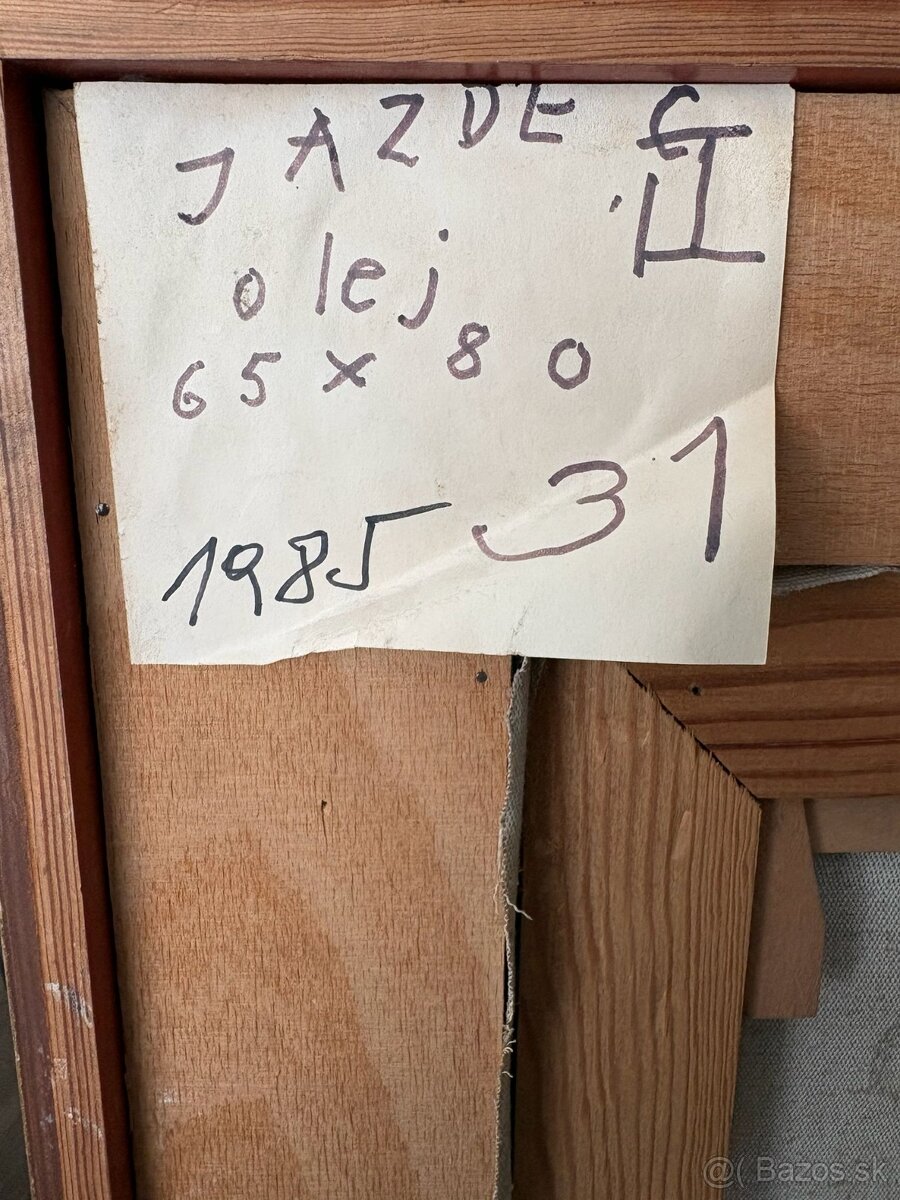 JAZDEC II.
olej
65 x 80
31
1985
@( Bazos.sk